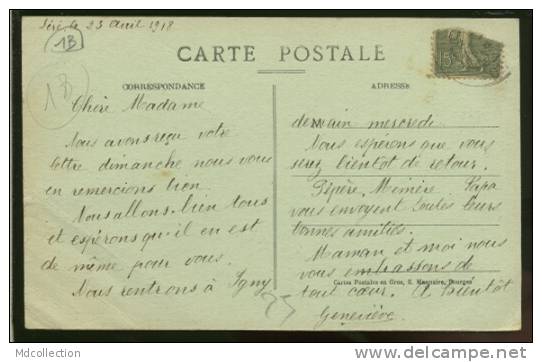 Séré le 23 Avril 1918
1B
CARTE POSTALE
15
CORRESPONDANCE
ADRESSE
1B
Chère Madame
Nous avons reçu votre
lettre dimanche nous vous
en remercions bien.
Nous allons bien tous
et espérons qu'il en est
de même pour vous.
Nous rentrons à Igny
demain mercredi.
Nous espérons que vous
serez bientôt de retour.
Pépère, Mémère Papa
vous envoyent toutes leurs
bonnes amitiés.
Maman et moi nous
vous embrassons de
Cartes Postales en Gros, E. Bourges
tout cœur. A Bientôt
Geneviève
MDCollection
www.delcampe.net